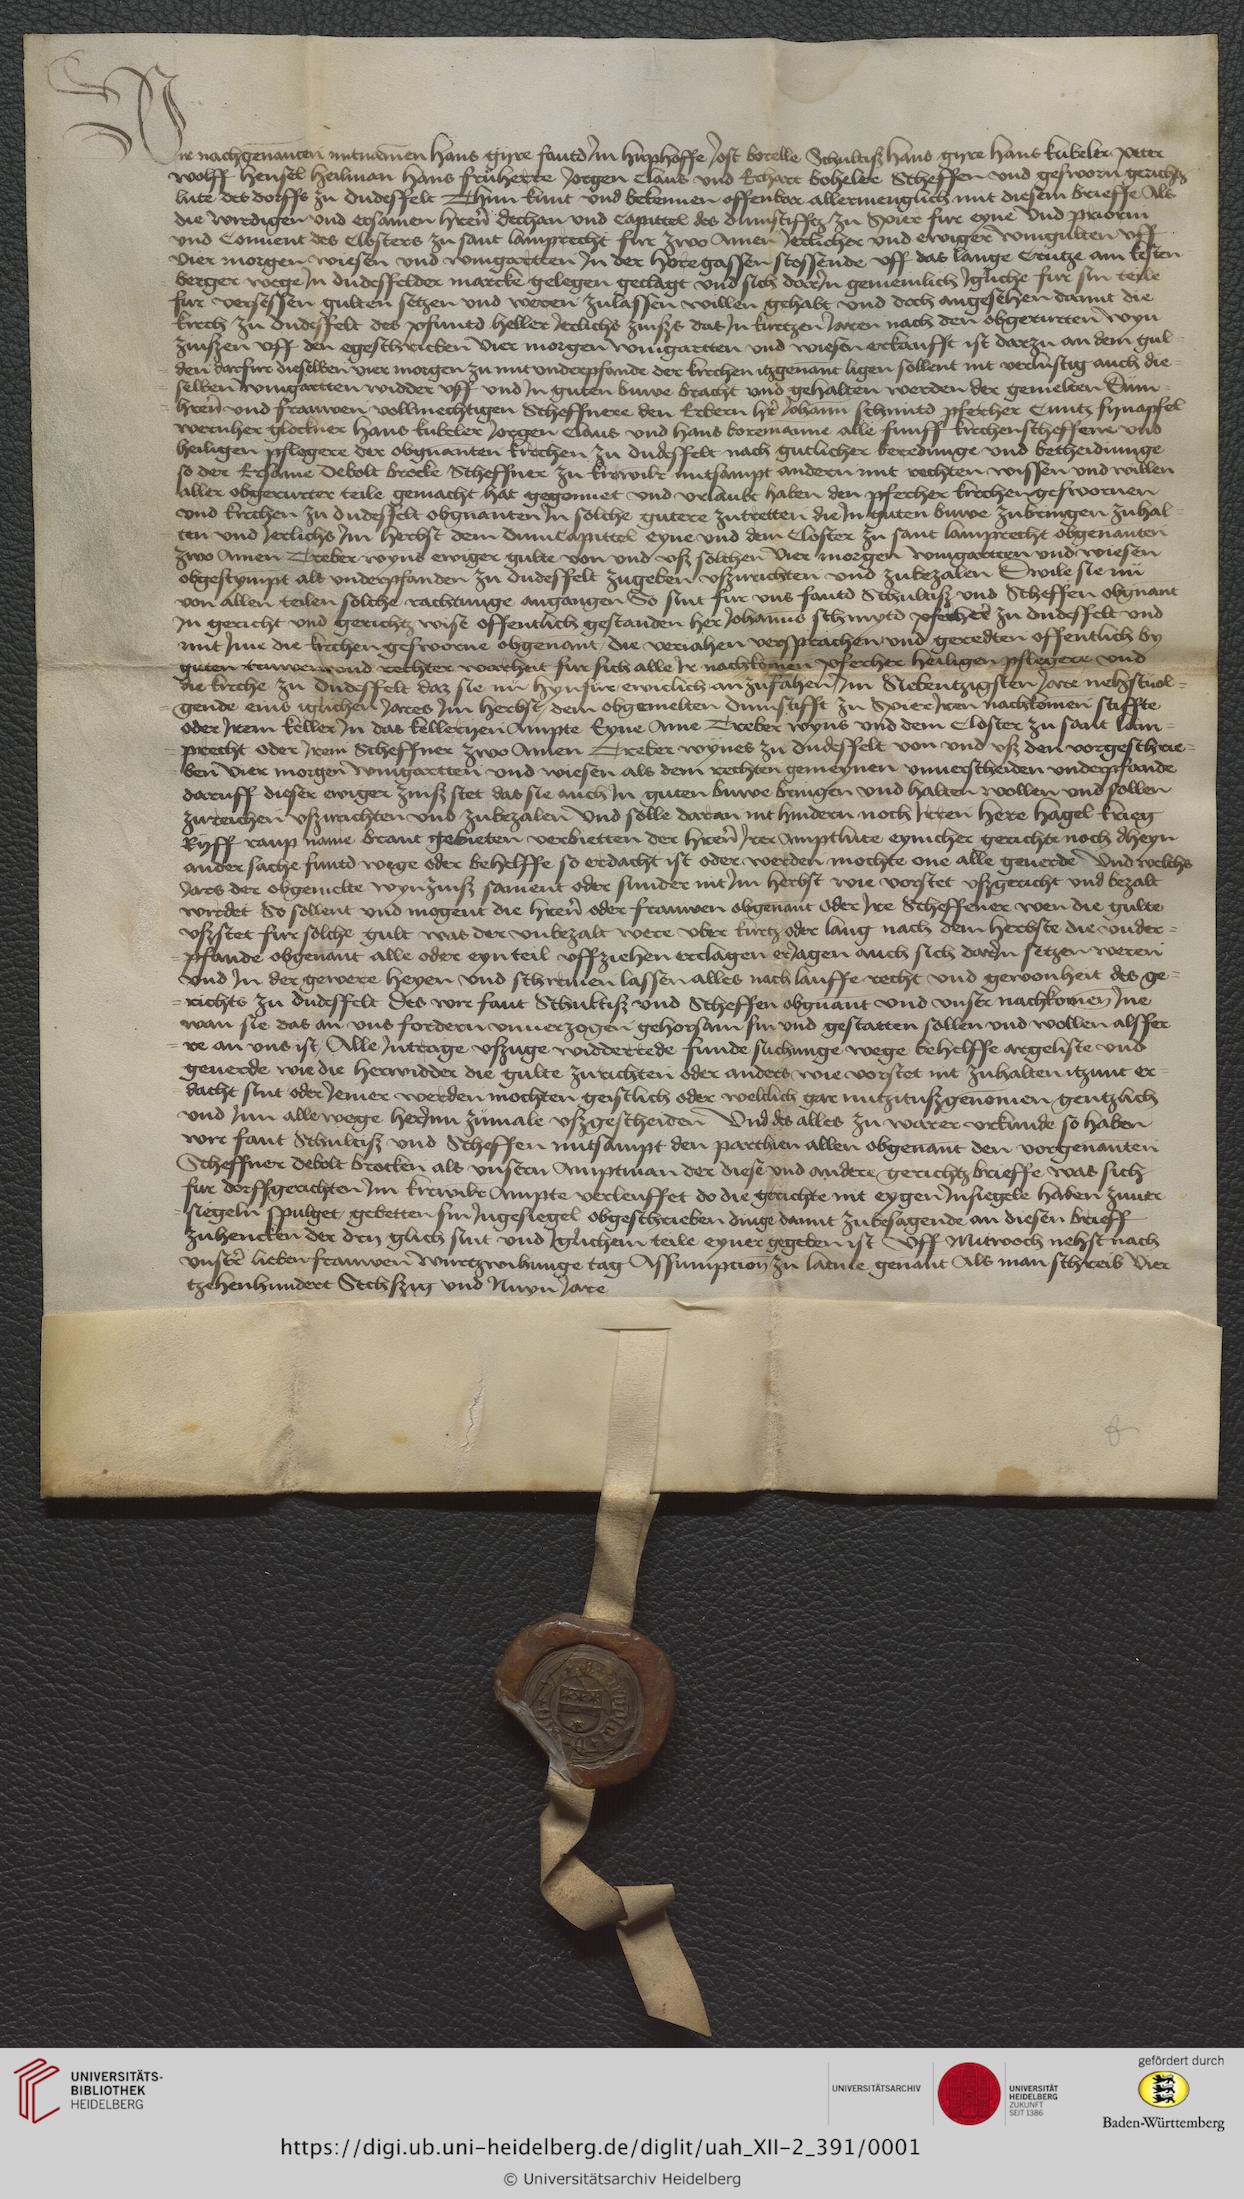 Wir nachgenanten mitnamen Hans gyre fautd Im huphoffe Jost borelle Schultisz Hans gyre Hans kubeler peter
wolff Hensel Heilman Hans fruherre Jorgen Claus und Echart boheler Scheffen und gesworn gerichtz
lute des dorffs zu dudesfelt Thun kunt und bekennen offenbar allermenglich mit diesem brieffe Als
die wirdigen und ersamen hren̄ dechan und Capittel des dumstiffts zu Spier fur eyne und priorin
und Conuent des Closters zu sant lamprecht fur zwo Amen Jerlicher und ewiger wingulten uff
vier morgen wiesen und wingartten In der horegassen stossende uff das lange Crutze am kesten
berger wege In dudesfelder marcke gelegen geclagt und sich darIn gemeinlich Igliche fur sin teile
fur versessen gulten setzen und weren zulassen willen gehabt und doch angesehen damit die
kirch zu dudesfelt des pfuntd heller Jerlichs zinszs das In kurtzen Jaren nach den obgerurten wyn
zinszen uff den egeschrieben vier morgen wingartten und wiesen erkaufft ist darzu an dem gul-
den darfur dieselben vier morgen zu mit underpfande der kirchen itzgenant ligen sollent nit verlustig auch die-
selben wingartten widder uff und In guten buwe bracht und gehalten werden der gemelten Dum-
hren̄ und frauwen vollmechtigen Scheffnere den Erbern hr̄ Johann schmitd pfercher Cuntz synapfel
wernher glockner Hans kubeler Jorgen Claus und Hans boremanne alle funff kirchenscheffene und
heiligen pflegere der obgnanten kirchen zu dudesfelt nach gutlicher beredunge und bethedinunge
so der Ersame Debolt brocke Scheffner zu kirwilr mitsampt andern mit rechten wissen und willen
aller obgerurter teile gemacht hat gegonnet und urlaubt haben den pfercher kirchengeswornen
und kirchen zu dudesfelt obgnanten In solche gutere zutretten die In guten buwe zubringen zuhal-
ten und Jerlichs Im Herbst dem dumCapittel eyne und dem Closter zu sant lamprecht obgenanten
zwo Amen Treber wyns ewiger gulte von und usz solchen vier morgen wingartten und wiesen
obgestympt als underpfanden zu dudesfelt zugeben uszurichten und zubezalen Dwile sie nu
von allen teilen solche rachtunge angangen So sint fur uns fautd Schultisz und Scheffen obgnant
In gericht und gerichtz wise offentlich gestanden her Johannes schmytd pfercher zu dudesfelt und
mit Ime die kirchen gesworne obgenant die veriahen versprachen und geredten offentlich by
guten truwen und rechter warheit fur sich alle Ir nachkomen pfercher heiligen pflegere und
die kirche zu dudesfelt daz sie nu hynfure ewiclich anzufahen Im Siebentzigsten Jare nehstuol-
gende eins iglichen Jares Im Herbst dem obgemelten dumstifft zu Spier Iren nachkomen stiffte
oder Irem keller In das kellerijen Ampte Eyne Ame Treber wyns und dem Closter zu sant lam-
precht oder Irem Scheffner zwo Amen Treber wynes zu dudesfelt von und usz den vorgeschrie-
ben vier morgen wingartten und wiesen als dem rechten gemeynen unuerscheiden underpfande
daruff dieser ewiger zinsz stet das sie auch In guten buwe bringen und halten wollen und sollen
zureichen uszurichten und zubezalen Und solle daran nit hindern noch Irren Here Hagel krieg
Ryff raup name brant gebieten verbietten der hren̄ Irer Amptlute eynicher gerichte noch dheyn
ander sache funtd wege oder behelffe so erdacht ist oder werden mochte one alle geuerde Und welchs
Jars der obgemelte wynzinsz sament oder sunder nit Im herbst wie vorstet uszgericht und bezalt
wirdet So sollent und mogent die hren̄ oder frauwen obgenant oder Ire Scheffener wen die gulte
uszstet fur solche gult was der unbezalt were uber kurtz oder lang nach dem herbste die under-
pfande obgenant alle oder eyn teil uffziehen erclagen erJagen auch sich darIn setzen weren
und In der gewere heyen und schirmen lassen alles nach lauffe recht und gewonheit des ge-
richts zu dudesfelt Des wir faut Schultisz und Scheffen obgnant und unser nachkomen Ine
wan sie das an uns fordern unuerzogen gehorsam sin und gestatten sollen und wollen alsfer
re an uns ist Alle Intrage uszuge widderrede funde suchunge wege behelffe argeliste und
geuerde wie die herwidder die gulte zurichten oder anders wie vorstet nit zuhalten itzunt er-
dacht sint oder Jemer werden mochten geistlich oder weltlich gar nutzituszgenomen gentzlich
und Inn allewege herInn zumale uszgescheiden Und des alles zu warer urkunde so haben
wir faut Schultisz und Scheffen mitsampt den parthien allen obgenant den vorgenanten
Scheffner debolt brocken als unsern Amptman der diese und andere gerichtz brieffe was sich
fur dorffgerichten Im kirwilr Ampte verleuffet do die gerichte nit eygen Insiegele haben zuuer
siegeln spulget gebetten sin Ingesiegel obgeschrieben dinge damit zubesagende an diesen brieff
zuhencken der dry glich sint und Iglichem teile eyner gegeben ist Uff Mitwoch nehst nach
unser̄ lieben frauwen wurtzwihunge tag Assumpcion̄ zu latine genant Als man schreib vier
tzehenhundert Sechszig und Nuyn Jare
UNIVERSITÄTS-
BIBLIOTHEK
HEIDELBERG
UNIVERSITÄTSARCHIV
UNIVERSITÄT
HEIDELBERG
ZUKUNFT
SEIT 1386
gefördert durch
Baden-Württemberg
https://digi.ub.uni-heidelberg.de/diglit/uah_XII-2_391/0001
© Universitätsarchiv Heidelberg